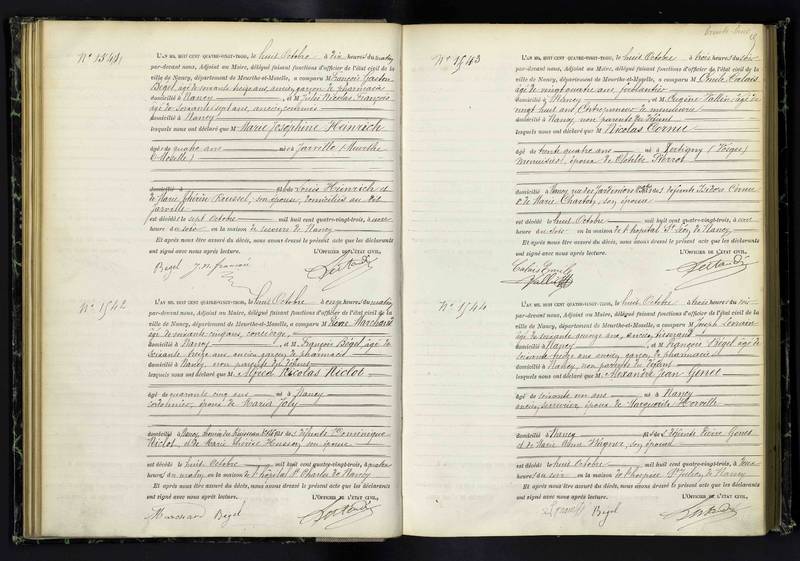 N° 1541
L'AN MIL HUIT CENT QUATRE-VINGT-TROIS, le huit Octobre à dix heures du matin
par-devant nous, Adjoint au Maire, délégué faisant fonctions d'officier de l'état civil de la
ville de Nancy, département de Meurthe-et-Moselle, a comparu M François
Begel, âgé de soixante treize ans, ancien garçon de pharmacie
domicilié à Nancy, et M Jules Nicolas François
âgé de soixante sept ans, ancien
domicilié à Nancy
lesquels nous ont déclaré que M Marie Joséphine Heinrich
âgé de quatre ans né à Jarville (Meurthe
& Moselle)
domicilié à fil de Louis Heinrich et
de Marie Roussel, son épouse, domiciliés au dit
Jarville
est décédé le sept Octobre mil huit cent quatre-vingt-trois, à onze
heures du soir en la maison de secours de Nancy
Et après nous être assuré du décès, nous avons dressé le présent acte que les déclarants
ont signé avec nous après lecture. L'OFFICIER DE L'ÉTAT CIVIL,
Begel J. N. François
N° 1542
L'AN MIL HUIT CENT QUATRE-VINGT-TROIS, le huit Octobre à onze heures du matin
par-devant nous, Adjoint au Maire, délégué faisant fonctions d'officier de l'état civil de la
ville de Nancy, département de Meurthe-et-Moselle, a comparu M Pierre Marchand
âgé de soixante cinq ans, concierge,
domicilié à Nancy, et M François Begel, âgé de
soixante treize ans ancien garçon de pharmacie
domicilié à Nancy, non parents du défunt
lesquels nous ont déclaré que M Alfred Nicolas Niclot
âgé de quarante cinq ans né à Nancy
cordonnier, époux de Maria Joly
domicilié à Nancy, fils de défunts Dominique
Niclot, et de Marie Husson, son épouse
est décédé le huit Octobre mil huit cent quatre-vingt-trois, à quatre
heures du matin en la maison de l'hôpital St Charles de Nancy
Et après nous être assuré du décès, nous avons dressé le présent acte que les déclarants
ont signé avec nous après lecture. L'OFFICIER DE L'ÉTAT CIVIL,
Marchand Begel
N° 1543
L'AN MIL HUIT CENT QUATRE-VINGT-TROIS, le huit Octobre à trois heures du soir
par-devant nous, Adjoint au Maire, délégué faisant fonctions d'officier de l'état civil de la
ville de Nancy, département de Meurthe-et-Moselle, a comparu M Emile Calais
âgé de vingt quatre ans ferblantier
domicilié à Nancy, et M Eugène Vallin, âgé de
vingt huit ans, Entrepreneur de menuiserie
domicilié à Nancy, non parents du défunt
lesquels nous ont déclaré que M Nicolas Cornu
âgé de trente quatre ans né à Xertigny (Vosges)
menuisier, époux de Clotilde Pierrot
domicilié à Nancy, rue des Jardiniers fils des défunts Isidore Cornu
& de Marie Charton, son épouse
est décédé le huit Octobre mil huit cent quatre-vingt-trois, à
heure du soir en la maison de l'hôpital St Léon de Nancy
Et après nous être assuré du décès, nous avons dressé le présent acte que les déclarants
ont signé avec nous après lecture. L'OFFICIER DE L'ÉTAT CIVIL,
Calais Emile
Vallin
N° 1544
L'AN MIL HUIT CENT QUATRE-VINGT-TROIS, le huit Octobre à trois heures du soir
par-devant nous, Adjoint au Maire, délégué faisant fonctions d'officier de l'état civil de la
ville de Nancy, département de Meurthe-et-Moselle, a comparu M Joseph
âgé de soixante quinze ans, ancien
domicilié à Nancy, et M François Begel, âgé de
soixante treize ans ancien garçon de pharmacie
domicilié à Nancy, non parents du défunt
lesquels nous ont déclaré que M Alexandre Jean Genet
âgé de soixante un ans né à Nancy
ancien serrurier, époux de Marguerite
domicilié à Nancy fils des défunts Pierre Genet
et de Marie Anne Wagner, son épouse
est décédé le huit Octobre mil huit cent quatre-vingt-trois, à
heure du soir en la maison de l'hospice St Julien de Nancy
Et après nous être assuré du décès, nous avons dressé le présent acte que les déclarants
ont signé avec nous après lecture. L'OFFICIER DE L'ÉTAT CIVIL,
Begel